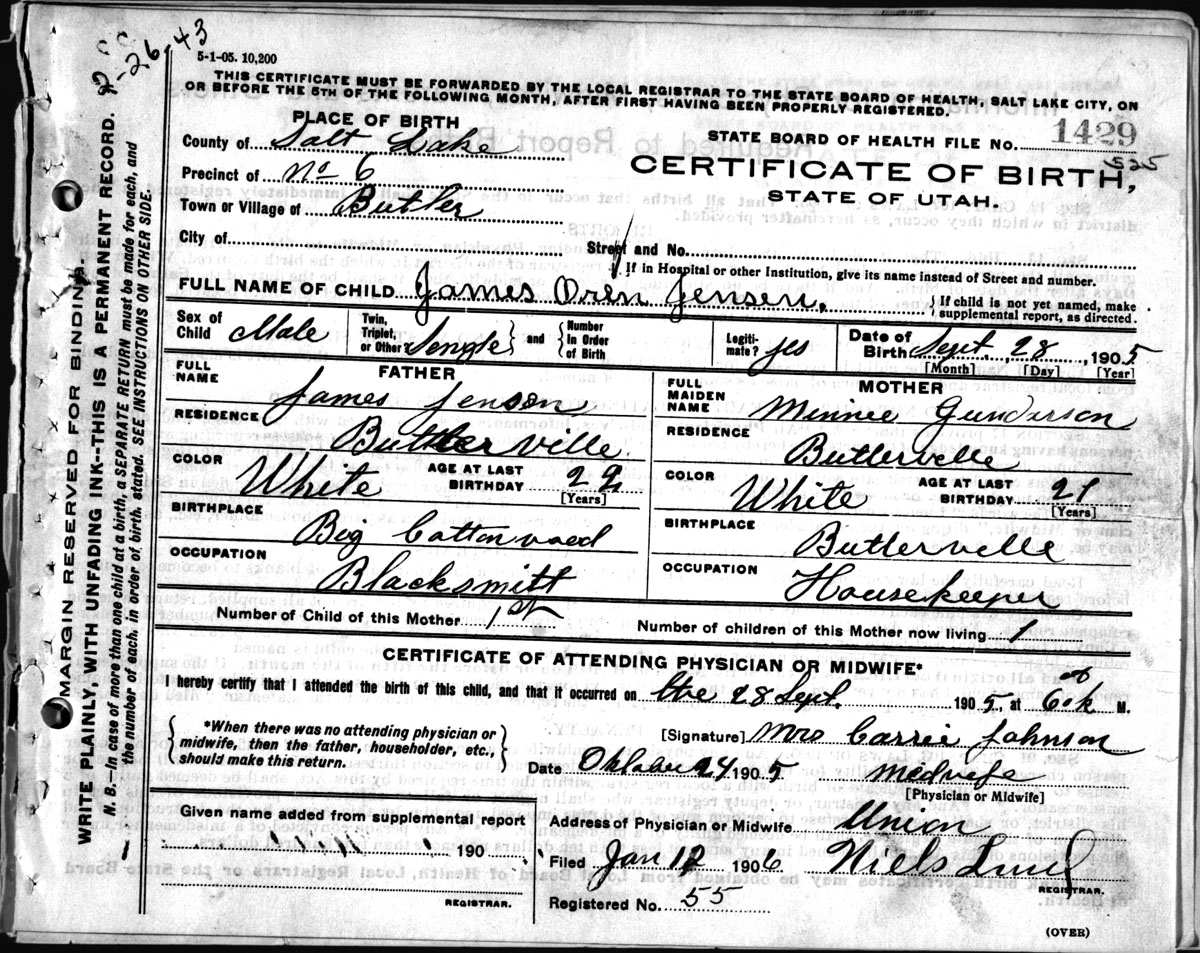 2-26-43
5-1-05. 10,200
THIS CERTIFICATE MUST BE FORWARDED BY THE LOCAL REGISTRAR TO THE STATE BOARD OF HEALTH, SALT LAKE CITY, ON
OR BEFORE THE 5TH OF THE FOLLOWING MONTH, AFTER FIRST HAVING BEEN PROPERLY REGISTERED.
PLACE OF BIRTH
County of Salt Lake
Precinct of No 6
Town or Village of Butler
City of
STATE BOARD OF HEALTH FILE NO. 1429
525
CERTIFICATE OF BIRTH,
STATE OF UTAH.
Street and No.
If in Hospital or other Institution, give its name instead of Street and number.
FULL NAME OF CHILD James Oren Jensen, } If child is not yet named, make
supplemental report, as directed.
Sex of Child Male
Twin, Triplet, or Other Sengle } and { Number In Order of Birth
Legiti-mate? yes
Date of Birth Sept. 28, 1905
[Month] [Day] [Year]
FATHER
FULL NAME James Jenson
RESIDENCE Butlerville
COLOR White AGE AT LAST BIRTHDAY 29
[Years]
BIRTHPLACE Big Cottonwood
OCCUPATION Blacksmitt
MOTHER
FULL MAIDEN NAME Minnie Gunderson
RESIDENCE Butlervelle
COLOR White AGE AT LAST BIRTHDAY 21
[Years]
BIRTHPLACE Butlervelle
OCCUPATION Housekeeper
Number of Child of this Mother 1st
Number of children of this Mother now living 1
CERTIFICATE OF ATTENDING PHYSICIAN OR MIDWIFE*
I hereby certify that I attended the birth of this child, and that it occurred on the 28 Sept. 1905, at 6 M.
{ *When there was no attending physician or
midwife, then the father, householder, etc.,
should make this return. }
[Signature] Mrs Carrie Johnson
Date 24 1905 Medvife
[Physician or Midwife]
Given name added from supplemental report
190
REGISTRAR.
Address of Physician or Midwife Union
Filed Jan 12 1906 Niels Lind
REGISTRAR.
Registered No. 55
(OVER)
MARGIN RESERVED FOR BINDING.
WRITE PLAINLY, WITH UNFADING INK--THIS IS A PERMANENT RECORD.
N. B.—In case of more than one child at a birth, a SEPARATE RETURN must be made for each, and
the number of each, in order of birth, stated. SEE INSTRUCTIONS ON OTHER SIDE.